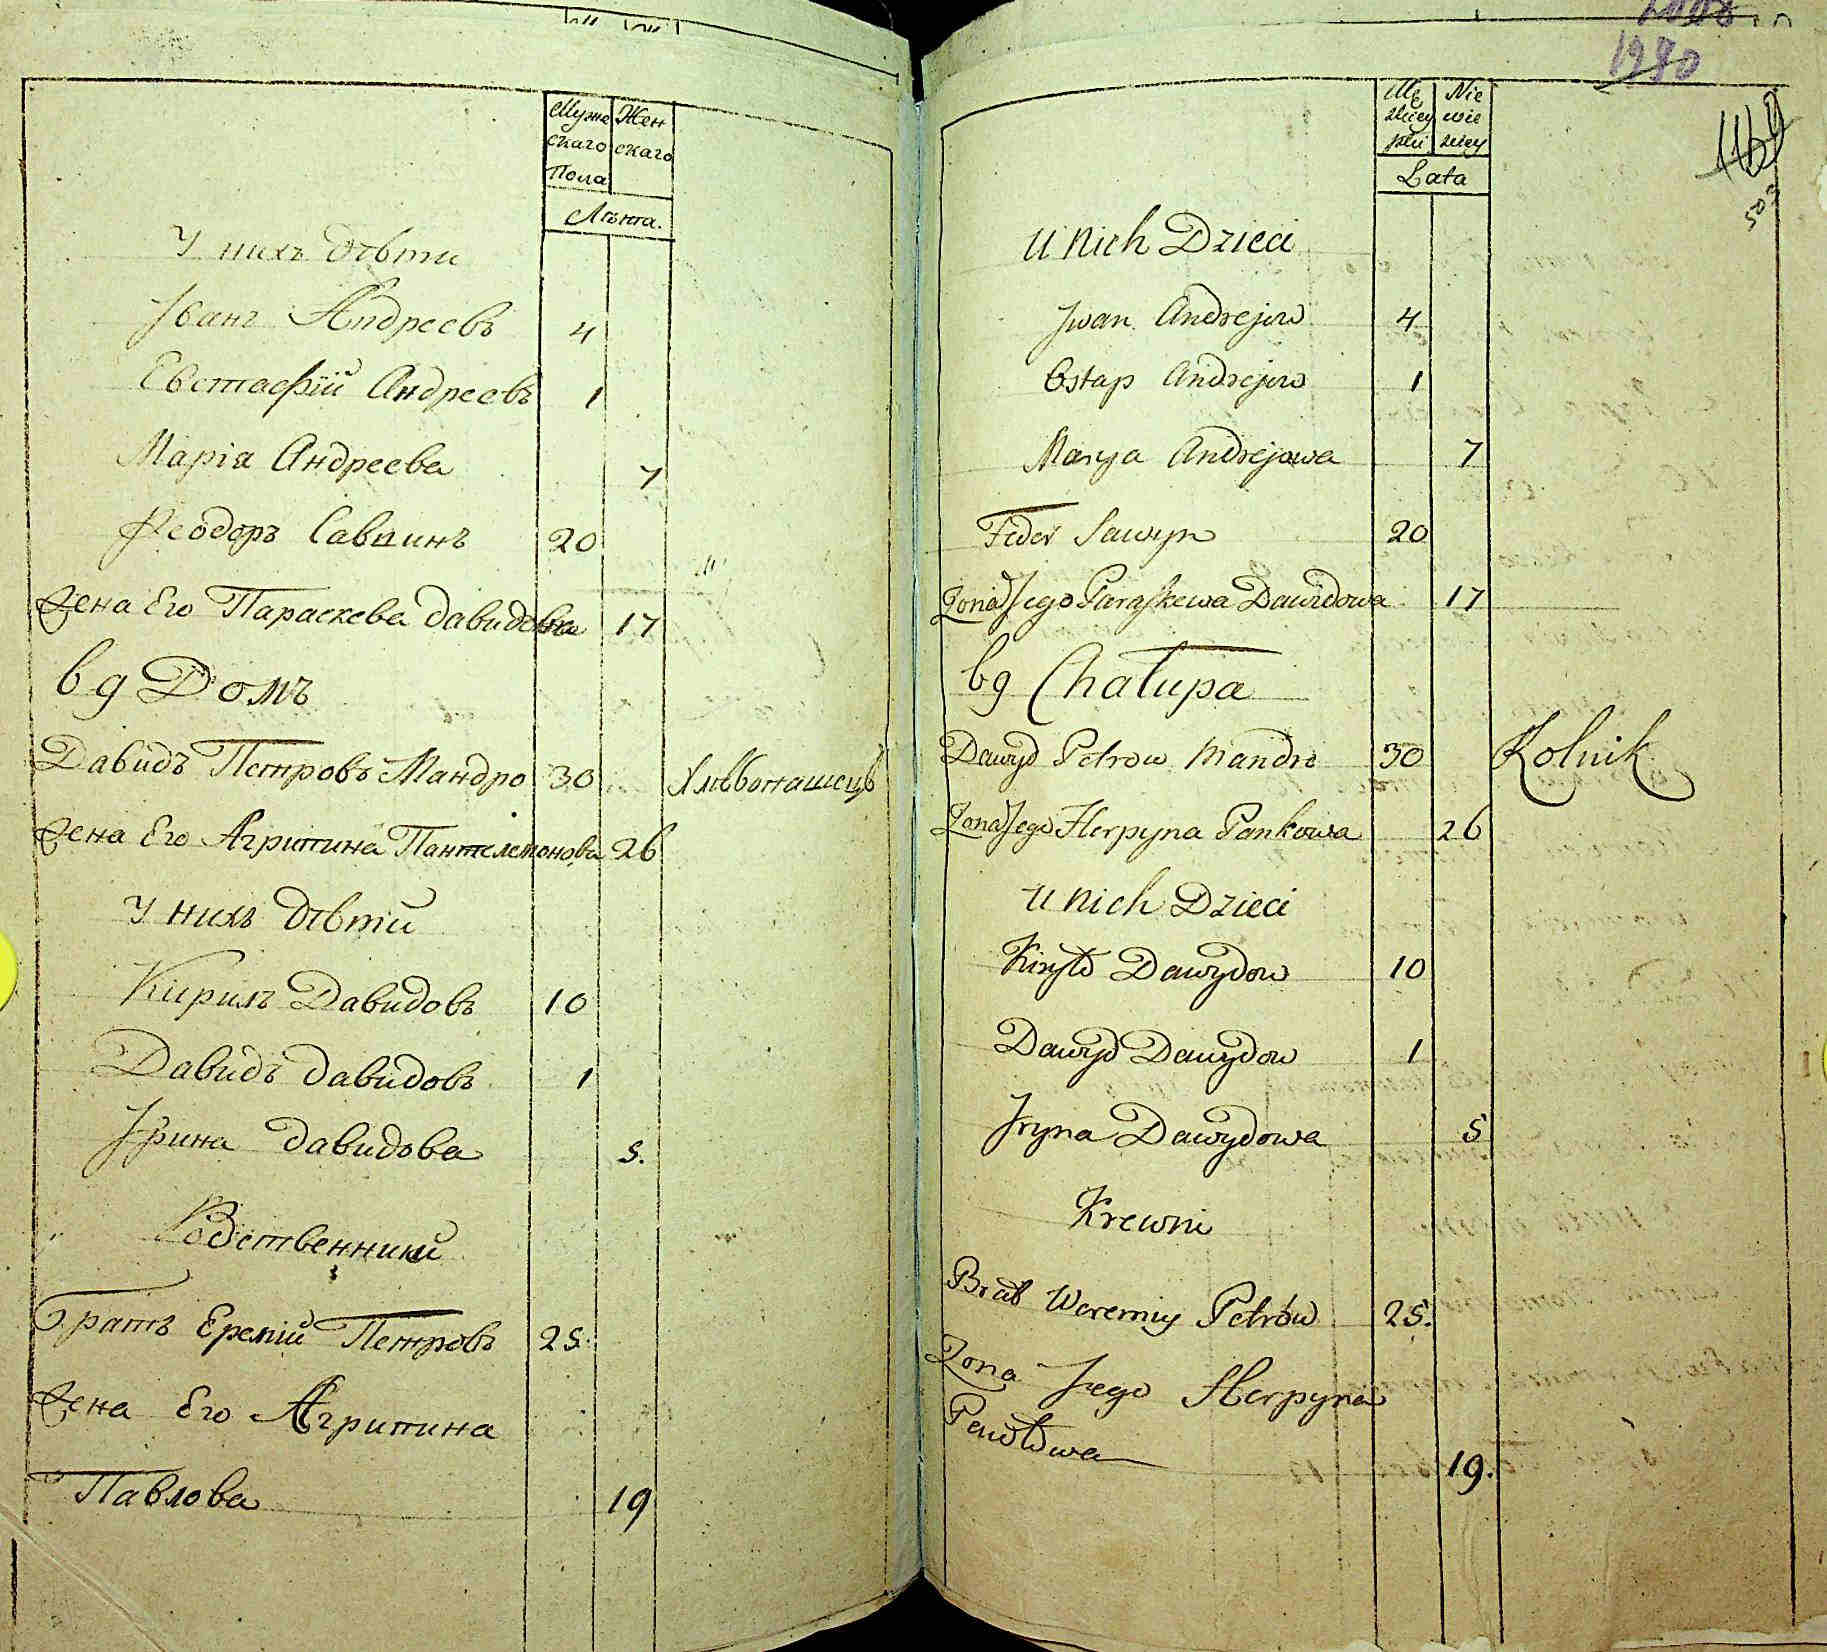 Муже Жен
скаго скаго
Пола
Лѣта.
У нихъ дѣти
Іванъ Андреевъ 4
Евстафій Андреевъ 1
Марія Андреева 7
Феодоръ Саввинъ 20
Жена Его Параскева Давидова 17
Домъ
Давидъ Петровъ Мандро 30 Хлѣбопашецъ
Жена Его Агрипина Пантелемонова 26
У нихъ дѣти
Кирилъ Давидовъ 10
Давидъ Давидовъ 1
Ірина Давидова 5.
Родственники
Братъ Еремій Петровъ 25.
Жена Его Агрипина
Павлова 19
1980
Mę Nie
zkiey wie
płci sciey
Lata
U nich Dzieci
Jwan Andrejow 4
Ostap Andrejow 1
Marya Andrejowa 7
Fedor Sawyn 20
Zona Jego Paraskewa Dawidowa 17
Chałupa
Dawyd Petrow Mandro 30 Rolnik
Zona Jego Herpyna Pankowa 26
U nich Dzieci
Kiryło Dawydow 10
Dawyd Dawydow 1
Iryna Dawydowa 5
Krewni
Brat Weremiy Petrow 25.
Zona Jego Herpyna
Pawłowa 19.